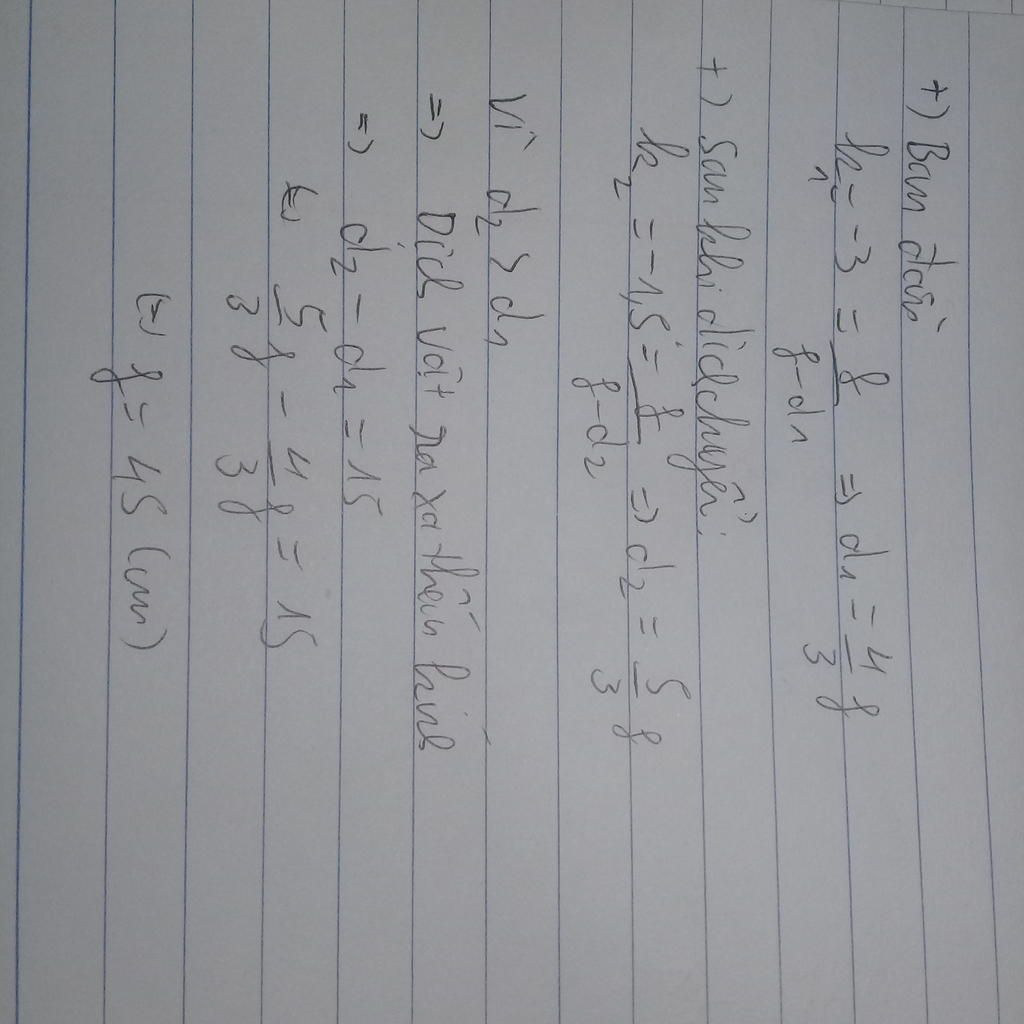 +) Ban đầu
k₁ = -3 = f/(f-d₁) => d₁ = 4/3 f
+) Sau khi dịch chuyển:
k₂ = -1,5 = f/(f-d₂) => d₂ = 5/3 f
Vì d₂ > d₁
=> Dịch vật ra xa thấu kính
=> d₂ - d₁ = 15
<=> 5/3 f - 4/3 f = 15
<=> f = 45 (cm)